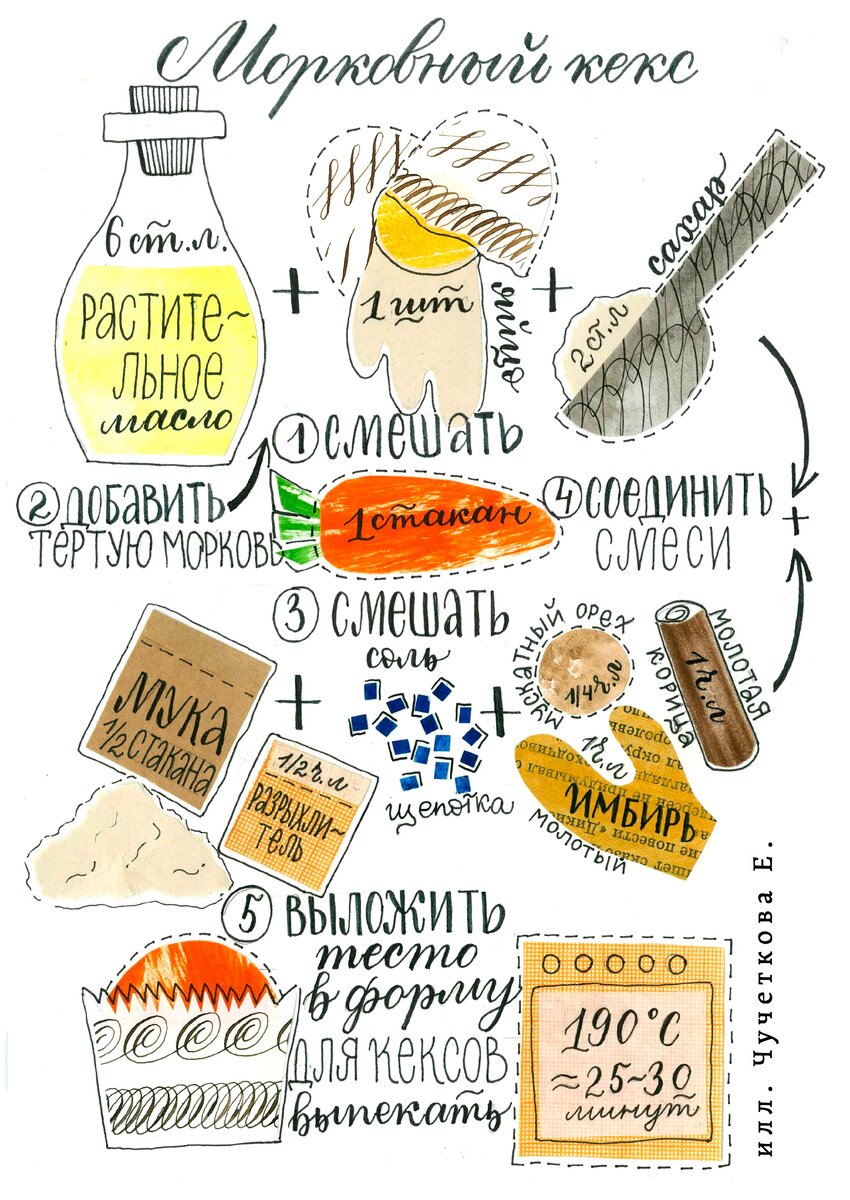 Морковный кекс
6 ст.л.
РАСТИТЕ~
ЛЬНОЕ
масло
+
1 шт
яйцо
+
сахар
2 ст.л
① СМЕШАТЬ
② ДОБАВИТЬ
ТЁРТУЮ МОРКОВЬ
1 стакан
④ СОЕДИНИТЬ
СМЕСИ
+
③ СМЕШАТЬ
МУКА
1/2 СТАКАНА
1/2 ч.л
РАЗРЫХЛИ~
ТЕЛЬ
+
соль
щепотка
+
МУСКАТНЫЙ ОРЕХ
1/4 ч.л
МОЛОТАЯ
КОРИЦА
1 ч.л
1 ч.л
ИМБИРЬ
МОЛОТЫЙ
⑤ ВЫЛОЖИТЬ
тесто
в форму
ДЛЯ КЕКСОВ
выпекать
190°С
≈25~30
минут
илл. Чучеткова Е.